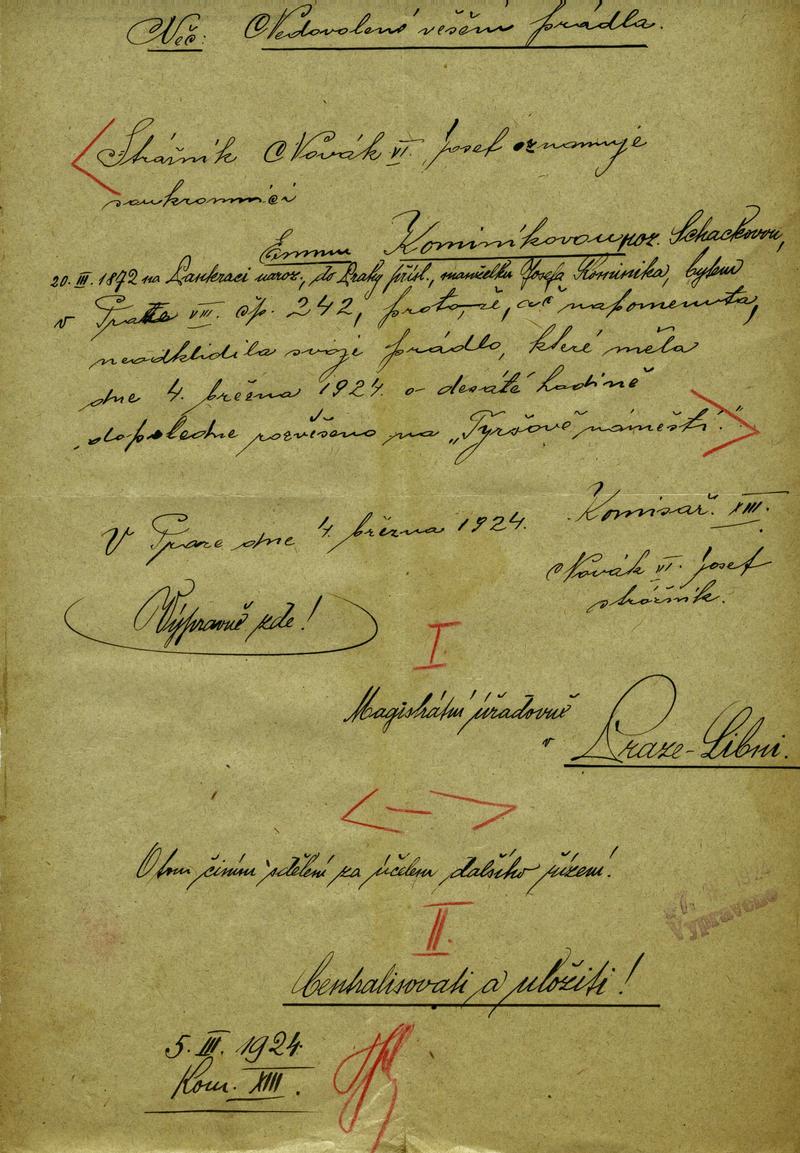 Věč: Nedovolené věšení prádla.
Strážník Novák VI. Josef oznamuje
soukromnici
Emmu Kominíkovou roz. Schackovou,
20. III. 1872 na Pankraci naroz., do Prahy přísl., manželku Josefa Kominíka, bytem
v Praze VIII. čp. 242, proto, že, ač napomenuta,
neodklidila svoje prádlo, které měla
dne 4. března 1924. o desáté hodině
dopoledne rozvěšeno na „Tyršově náměstí."
V Praze dne 4. března 1924. Komisař. XIII.
Novák VI. Josef
strážník.
Výpravně zde!
I.
Magistrátní úřadovně
v Praze-Libni.
< — >
O tom činím sdělení za účelem dalšího řízení.
Vypraveno
II.
Centralisovati a uložiti!
5. III. 1924
Kom. XIII.